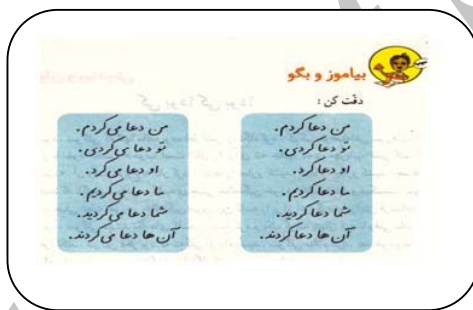 بیاموز و بگو
دقّت کن :
من دعا کردم.
تو دعا کردی.
او دعا کرد.
ما دعا کردیم.
شما دعا کردید.
آن ها دعا کردند.
من دعا می کردم.
تو دعا می کردی.
او دعا می کرد.
ما دعا می کردیم.
شما دعا می کردید.
آن ها دعا می کردند.